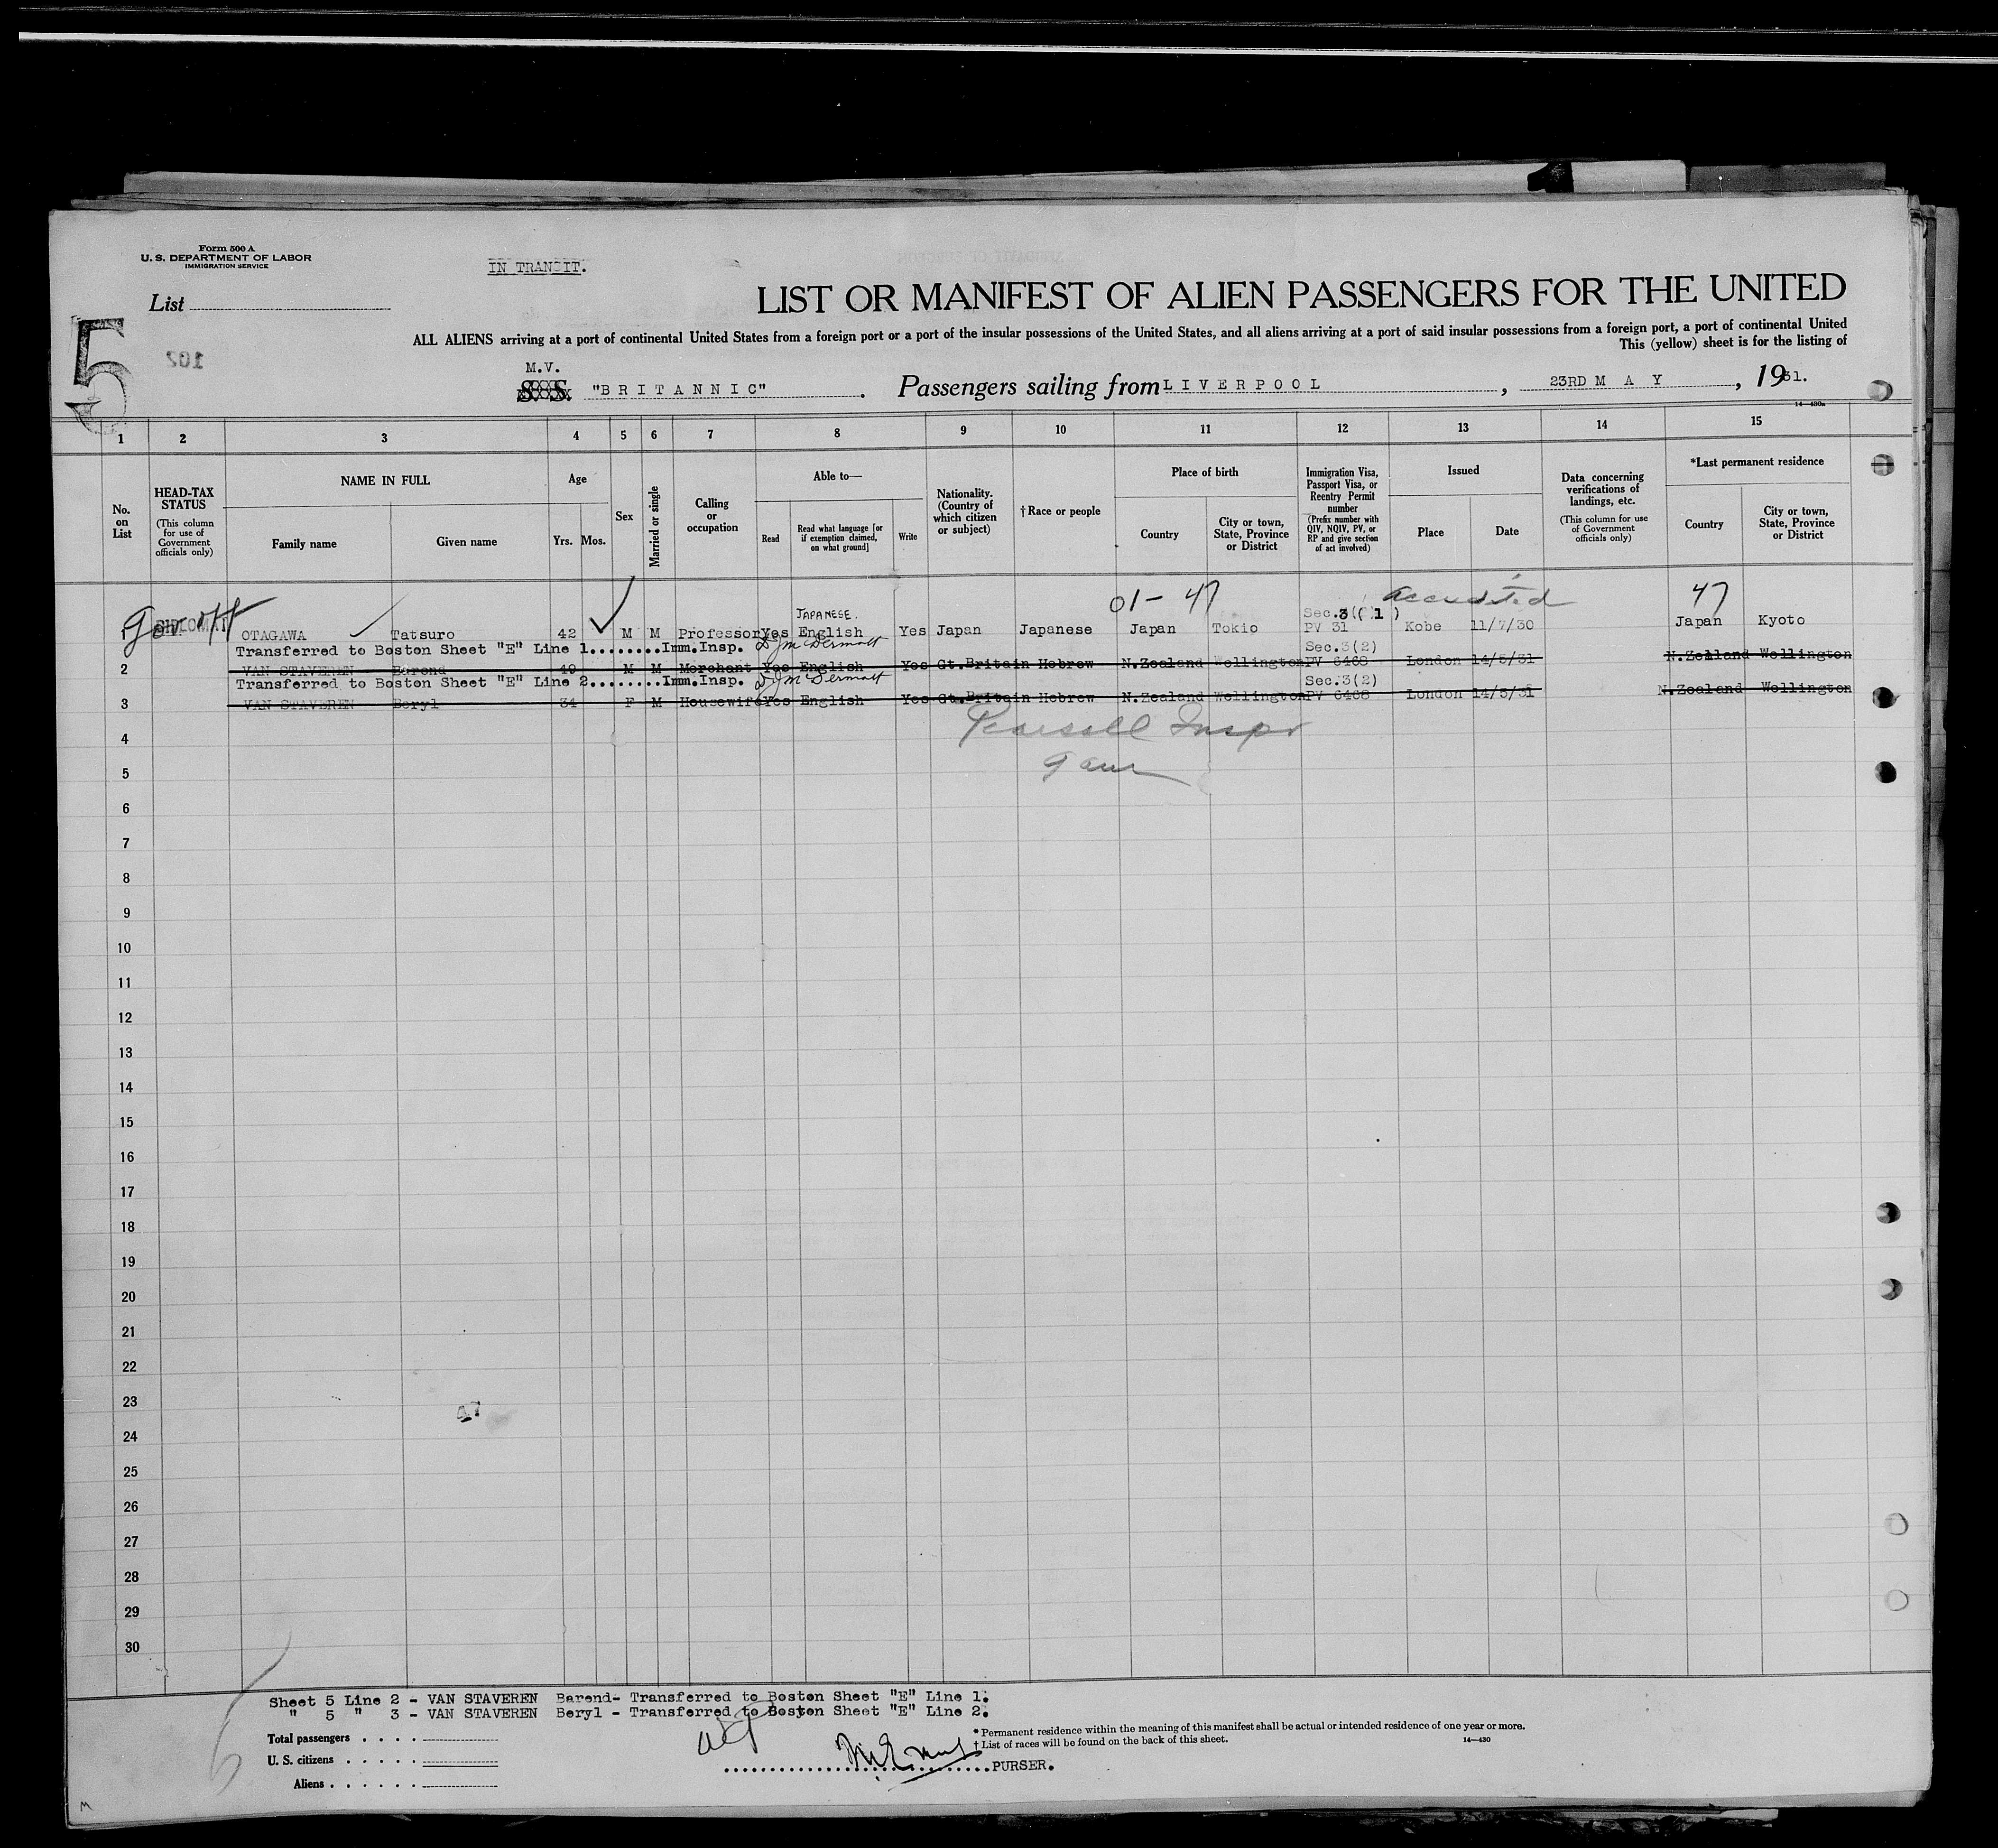 Form 500 A
U. S. DEPARTMENT OF LABOR
IMMIGRATION SERVICE
IN TRANSIT.
List
5
102
LIST OR MANIFEST OF ALIEN PASSENGERS FOR THE UNITED
ALL ALIENS arriving at a port of continental United States from a foreign port or a port of the insular possessions of the United States, and all aliens arriving at a port of said insular possessions from a foreign port, a port of continental United
This (yellow) sheet is for the listing of
M.V.
S. S. "BRITANNIC". Passengers sailing from LIVERPOOL, 23RD MAY, 1931.
14—430a
1 2 3 4 5 6 7 8 9 10 11 12 13 14 15
No. on List
HEAD-TAX STATUS
(This column for use of Government officials only)
NAME IN FULL
Family name
Given name
Age
Yrs. Mos.
Sex
Married or single
Calling or occupation
Able to—
Read
Read what language [or if exemption claimed, on what ground]
Write
Nationality. (Country of which citizen or subject)
†Race or people
Place of birth
Country
City or town, State, Province or District
Immigration Visa, Passport Visa, or Reentry Permit number
(Prefix number with QIV, NQIV, PV, or RP and give section of act involved)
Issued
Place
Date
Data concerning verifications of landings, etc.
(This column for use of Government officials only)
*Last permanent residence
Country
City or town, State, Province or District
01- 47 Accredited 47
JAPANESE. Sec.3(1)
Gov off DIPLOMAT
1 OTAGAWA Tatsuro 42 M M Professor Yes English Yes Japan Japanese Japan Tokio PV 31 Kobe 11/7/30 Japan Kyoto
Transferred to Boston Sheet "E" Line 1........Imm.Insp. D J McDermott Sec.3(2)
2 VAN STAVEREN Barend 40 M M Merchant Yes English Yes Gt.Britain Hebrew N.Zealand Wellington PV 6468 London 14/5/31 N.Zealand Wellington
Transferred to Boston Sheet "E" Line 2........Imm.Insp. D J McDermott Sec.3(2)
3 VAN STAVEREN Beryl 34 F M Housewife Yes English Yes Gt.Britain Hebrew N.Zealand Wellington PV 6468 London 14/5/31 N.Zealand Wellington
4
5
6
7
8
9
10
11
12
13
14
15
16
17
18
19
20
21
22
23
24
25
26
27
28
29
30
Sheet 5 Line 2 - VAN STAVEREN Barend- Transferred to Boston Sheet "E" Line 1.
" 5 " 3 - VAN STAVEREN Beryl - Transferred to Boston Sheet "E" Line 2.
Total passengers . . . .
U. S. citizens . . . . .
Aliens . . . . . .
* Permanent residence within the meaning of this manifest shall be actual or intended residence of one year or more.
† List of races will be found on the back of this sheet.
14—430
PURSER.
M